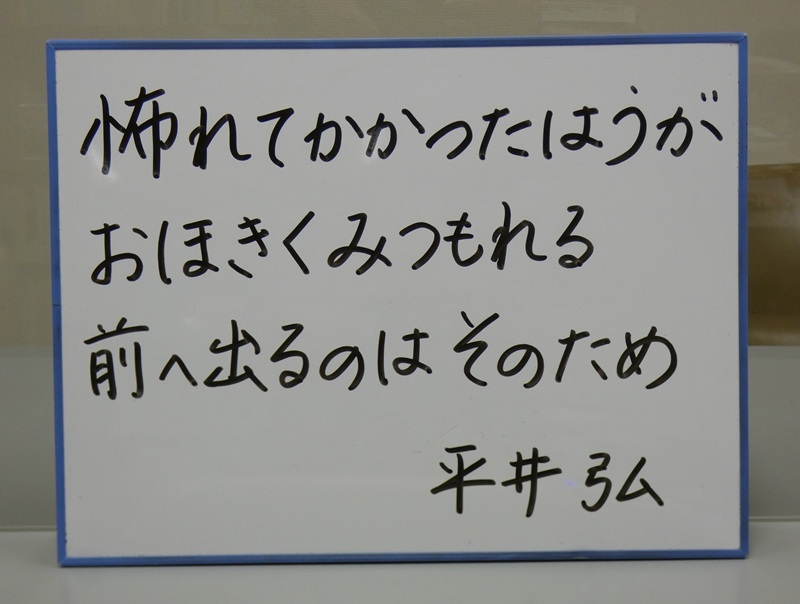 怖れてかかったはうが
おほきくみつもれる
前へ出るのは そのため
平井 弘